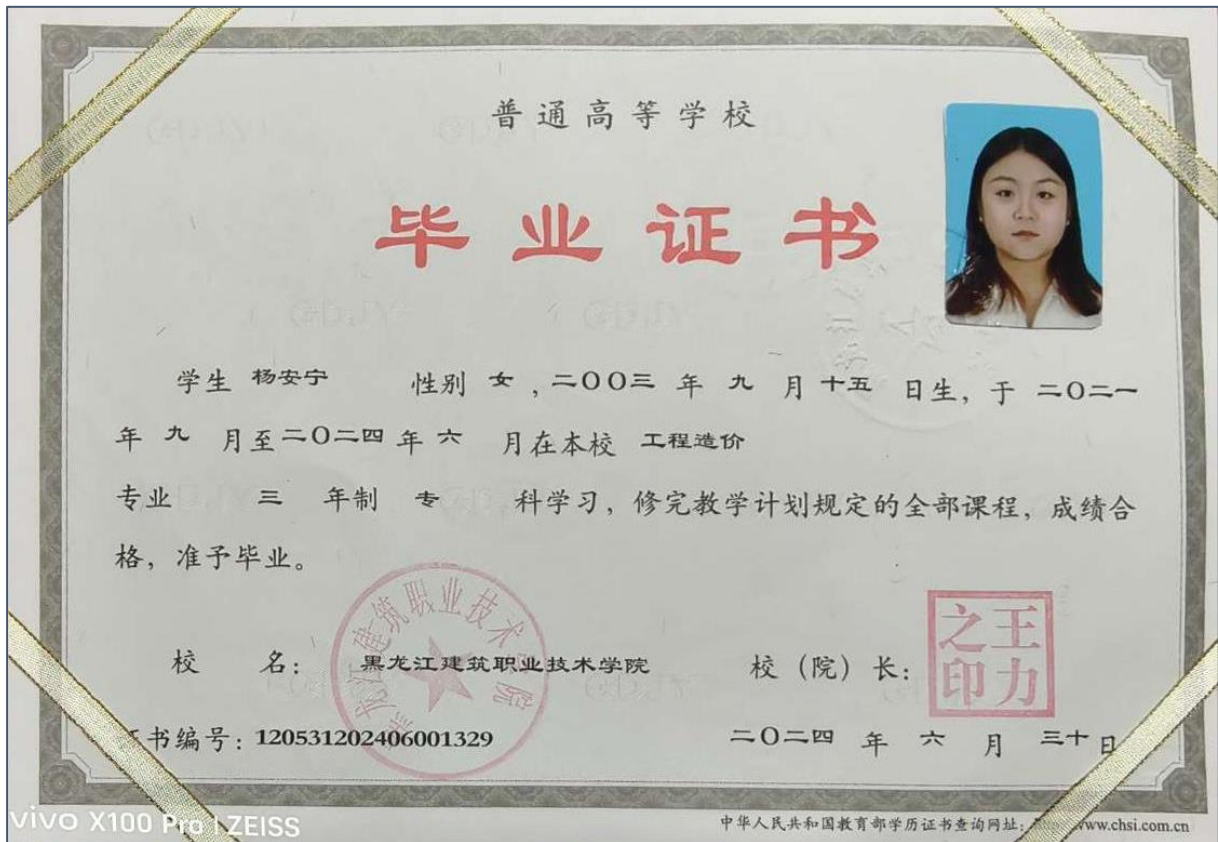 普通高等学校
毕业证书
学生 杨安宁 性别 女 , 二〇〇三 年 九 月 十五 日生, 于 二〇二一
年 九 月至 二〇二四 年 六 月在本校 工程造价
专业 三 年制 专 科学习, 修完教学计划规定的全部课程, 成绩合
格, 准予毕业。
校 名: 黑龙江建筑职业技术学院 校 (院) 长:
王力之印
黑龙江建筑职业技术学院
书编号: 120531202406001329 二〇二四 年 六 月 三十 日
vivo X100 Pro | ZEISS
中华人民共和国教育部学历证书查询网址: www.chsi.com.cn